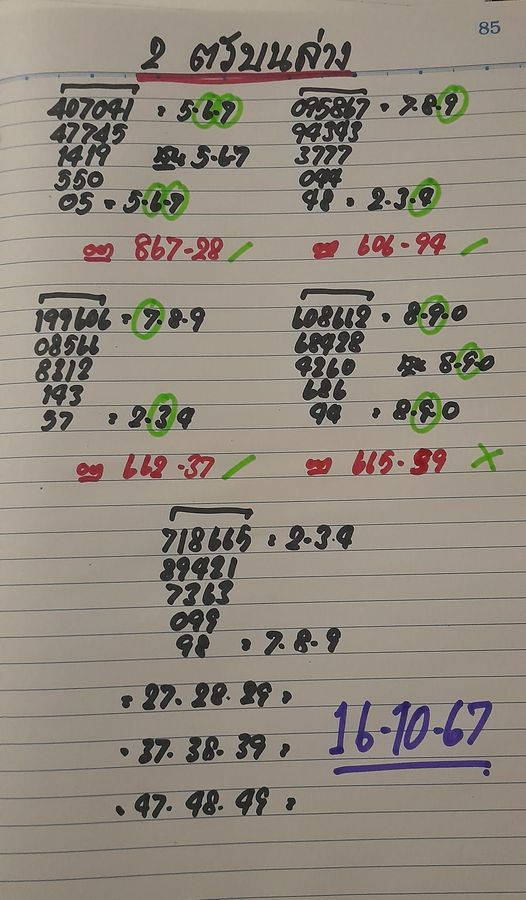 85
2 ตัวบนล่าง
407041 = 5-6-7
47745
1419 5-6-7
550
05 = 5-6-7
ออก 867-28 ✓
095867 = 7-8-9
94343
3777
044
48 = 2-3-4
ออก 606-94 ✓
199606 = 7-8-9
08566
8312
143
57 = 2-3-4
ออก 662-37 ✓
608662 = 8-9-0
68428
4260 8-9-0
686
44 = 8-9-0
ออก 665-59 ✗
718665 = 2-3-4
89421
7363
099
98 = 7-8-9
= 27-28-29 =
= 37-38-39 =
= 47-48-49 =
16-10-67